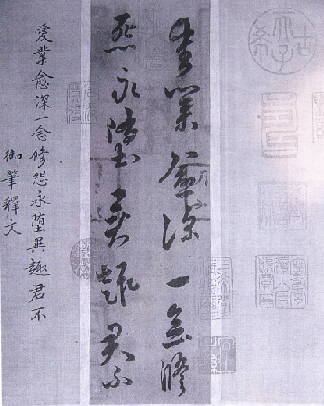 古希天子
愛業愈深一念修
怨永墮異趣君不
愛業愈深一念修怨永墮異趣君不
御筆釋文